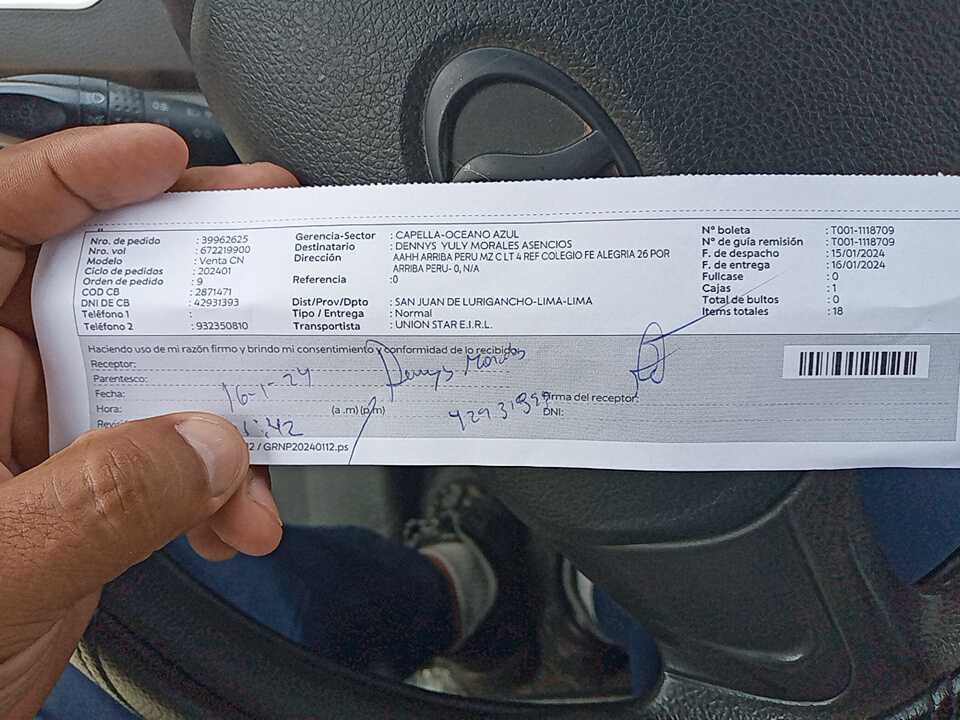 Nro. de pedido : 39962625
Nro. vol : 672219900
Modelo : Venta CN
Ciclo de pedidos : 202401
Orden de pedido : 9
COD CB : 2871471
DNI DE CB : 42931393
Teléfono 1 :
Teléfono 2 : 932350810
Gerencia-Sector : CAPELLA-OCEANO AZUL
Destinatario : DENNYS YULY MORALES ASENCIOS
Dirección : AAHH ARRIBA PERU MZ C LT 4 REF COLEGIO FE ALEGRIA 26 POR
ARRIBA PERU- 0, N/A
Referencia :0
Dist/Prov/Dpto : SAN JUAN DE LURIGANCHO-LIMA-LIMA
Tipo / Entrega : Normal
Transportista : UNION STAR E.I.R.L.
N° boleta : T001-1118709
N° de guía remisión : T001-1118709
F. de despacho : 15/01/2024
F. de entrega : 16/01/2024
Fullcase : 0
Cajas : 1
Total de bultos : 0
Items totales : 18
Haciendo uso de mi razón firmo y brindo mi consentimiento y conformidad de lo recibido
Receptor: Dennys Morales
Parentesco:
Fecha: 16-1-24
Hora: :42 (a .m) (p.m)
Firma del receptor:
DNI: 42931393
12 / GRNP20240112.ps